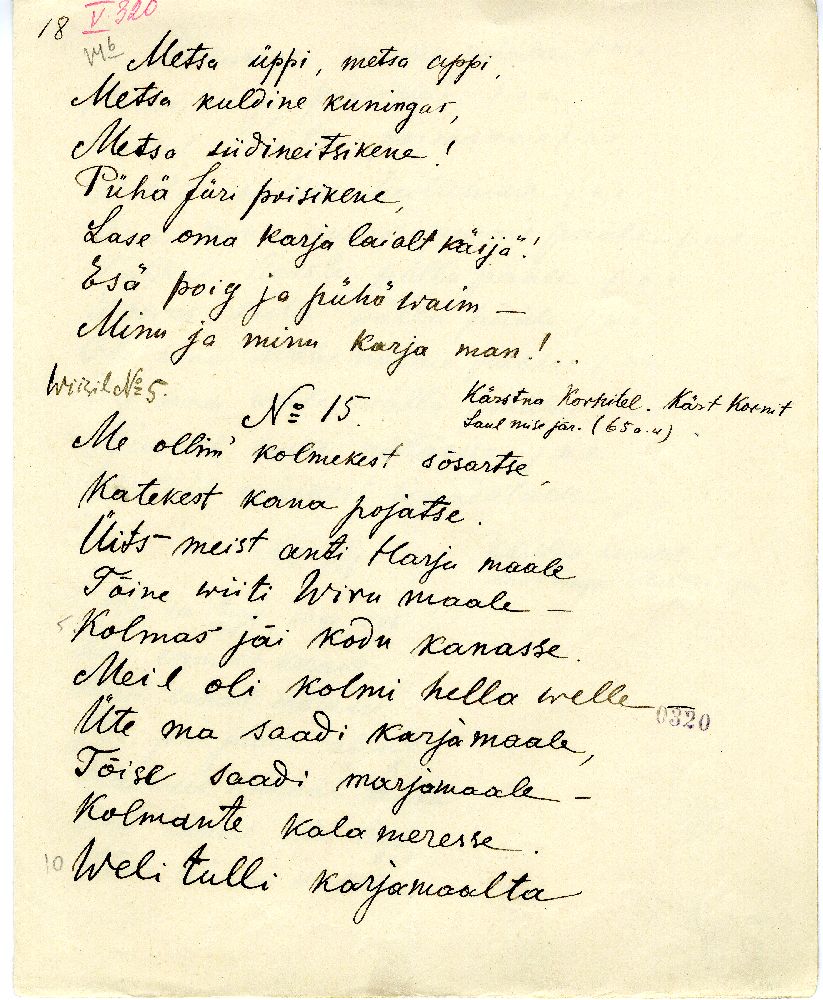 18 V 320
14b
Metsa üppi, metsa appi,
Metsa kuldine kuningas,
Metsa siidineitsikene!
Pühä Jüri poisikene,
Lase oma karja laialt käijä!
Esä poig ja pühä waim —
Minu ja minu karja man!..
Wiisil № 5.
№ 15.
Kärstna Korkitel. Kärt Kornit
Laulmise jär. (65 a. v.)
Me ollim' kolmekest sõsartse,
Katekest kana pojatse.
Üits meist anti Harju maale
Tõine wiiti Wiru maale —
5 Kolmas jäi kodu kanasse.
Meil oli kolmi hella welle —
0320
Üte ma saadi karjamaale,
Tõise saadi marjamaale —
Kolmante kala meresse.
10 Weli tulli karjamaalta